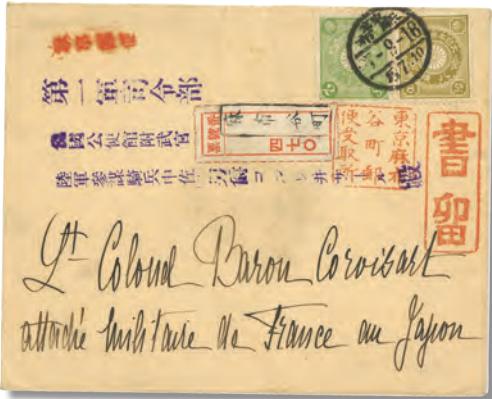 第一軍司令部
國公使館附武官
陸軍參謀騎兵中佐 男爵
麻布谷町
四七〇
東京麻布
谷町郵
便受取所
書留
Lt Colonel Baron Corvisart
attaché militaire de France au Japon